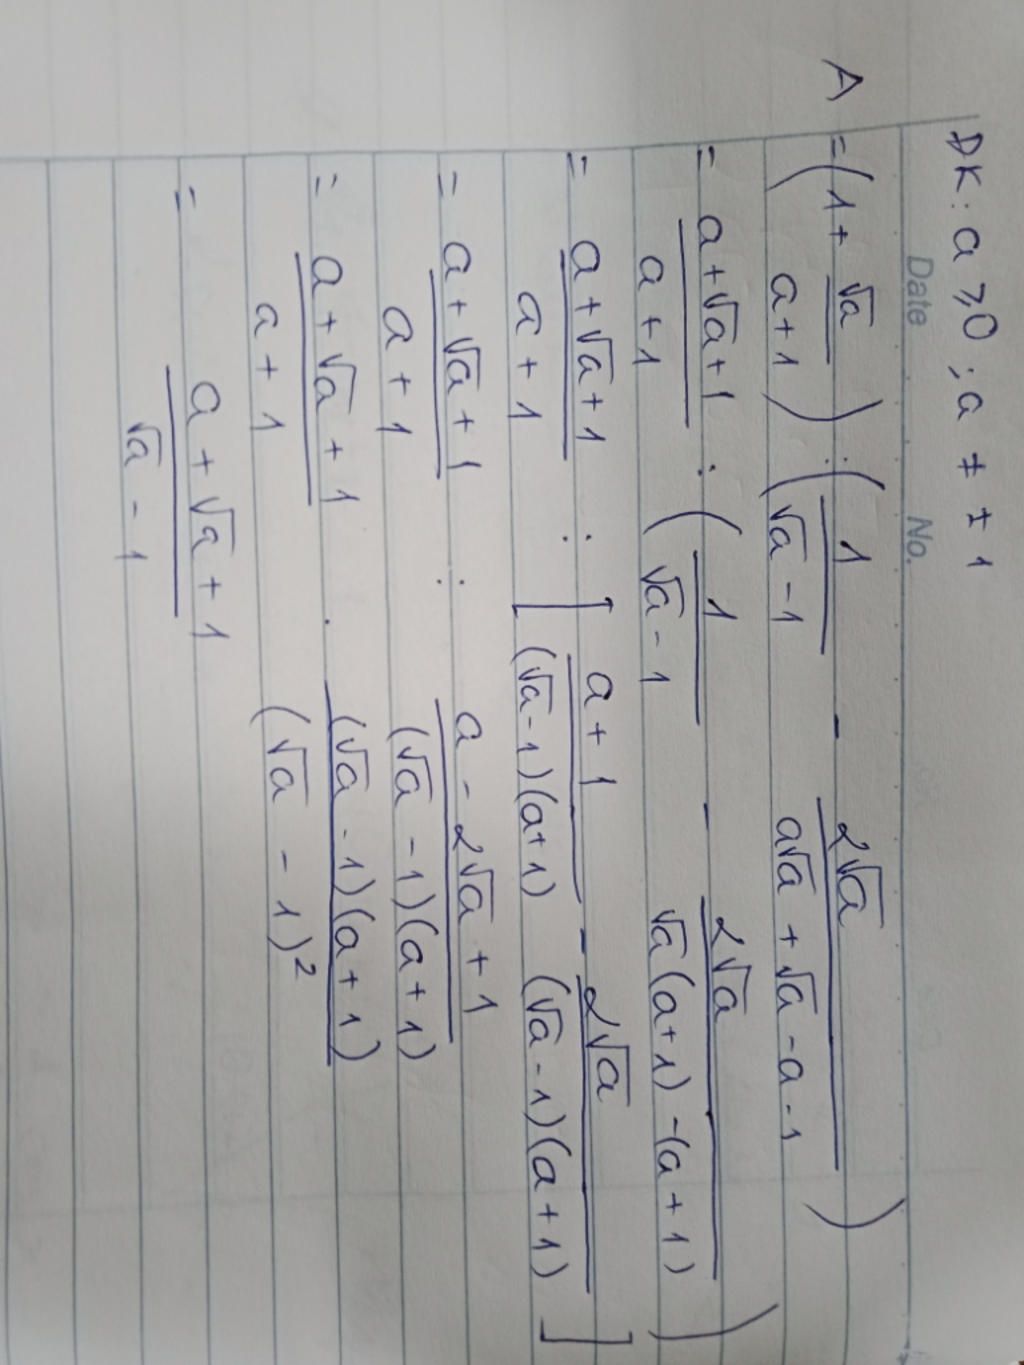 Date No.
ĐK: a ≥ 0 ; a ≠ ± 1
A = (1 + √a/(a+1)) : (1/(√a - 1) - 2√a/(a√a + √a - a - 1))
= (a+√a+1)/(a+1) : (1/(√a - 1) - 2√a/(√a(a+1) - (a+1)))
= (a+√a+1)/(a+1) : [(a+1)/((√a-1)(a+1)) - 2√a/((√a-1)(a+1))]
= (a+√a+1)/(a+1) : (a - 2√a + 1)/((√a - 1)(a+1))
= (a+√a+1)/(a+1) . ((√a - 1)(a+1))/(√a - 1)²
= (a+√a+1)/(√a - 1)